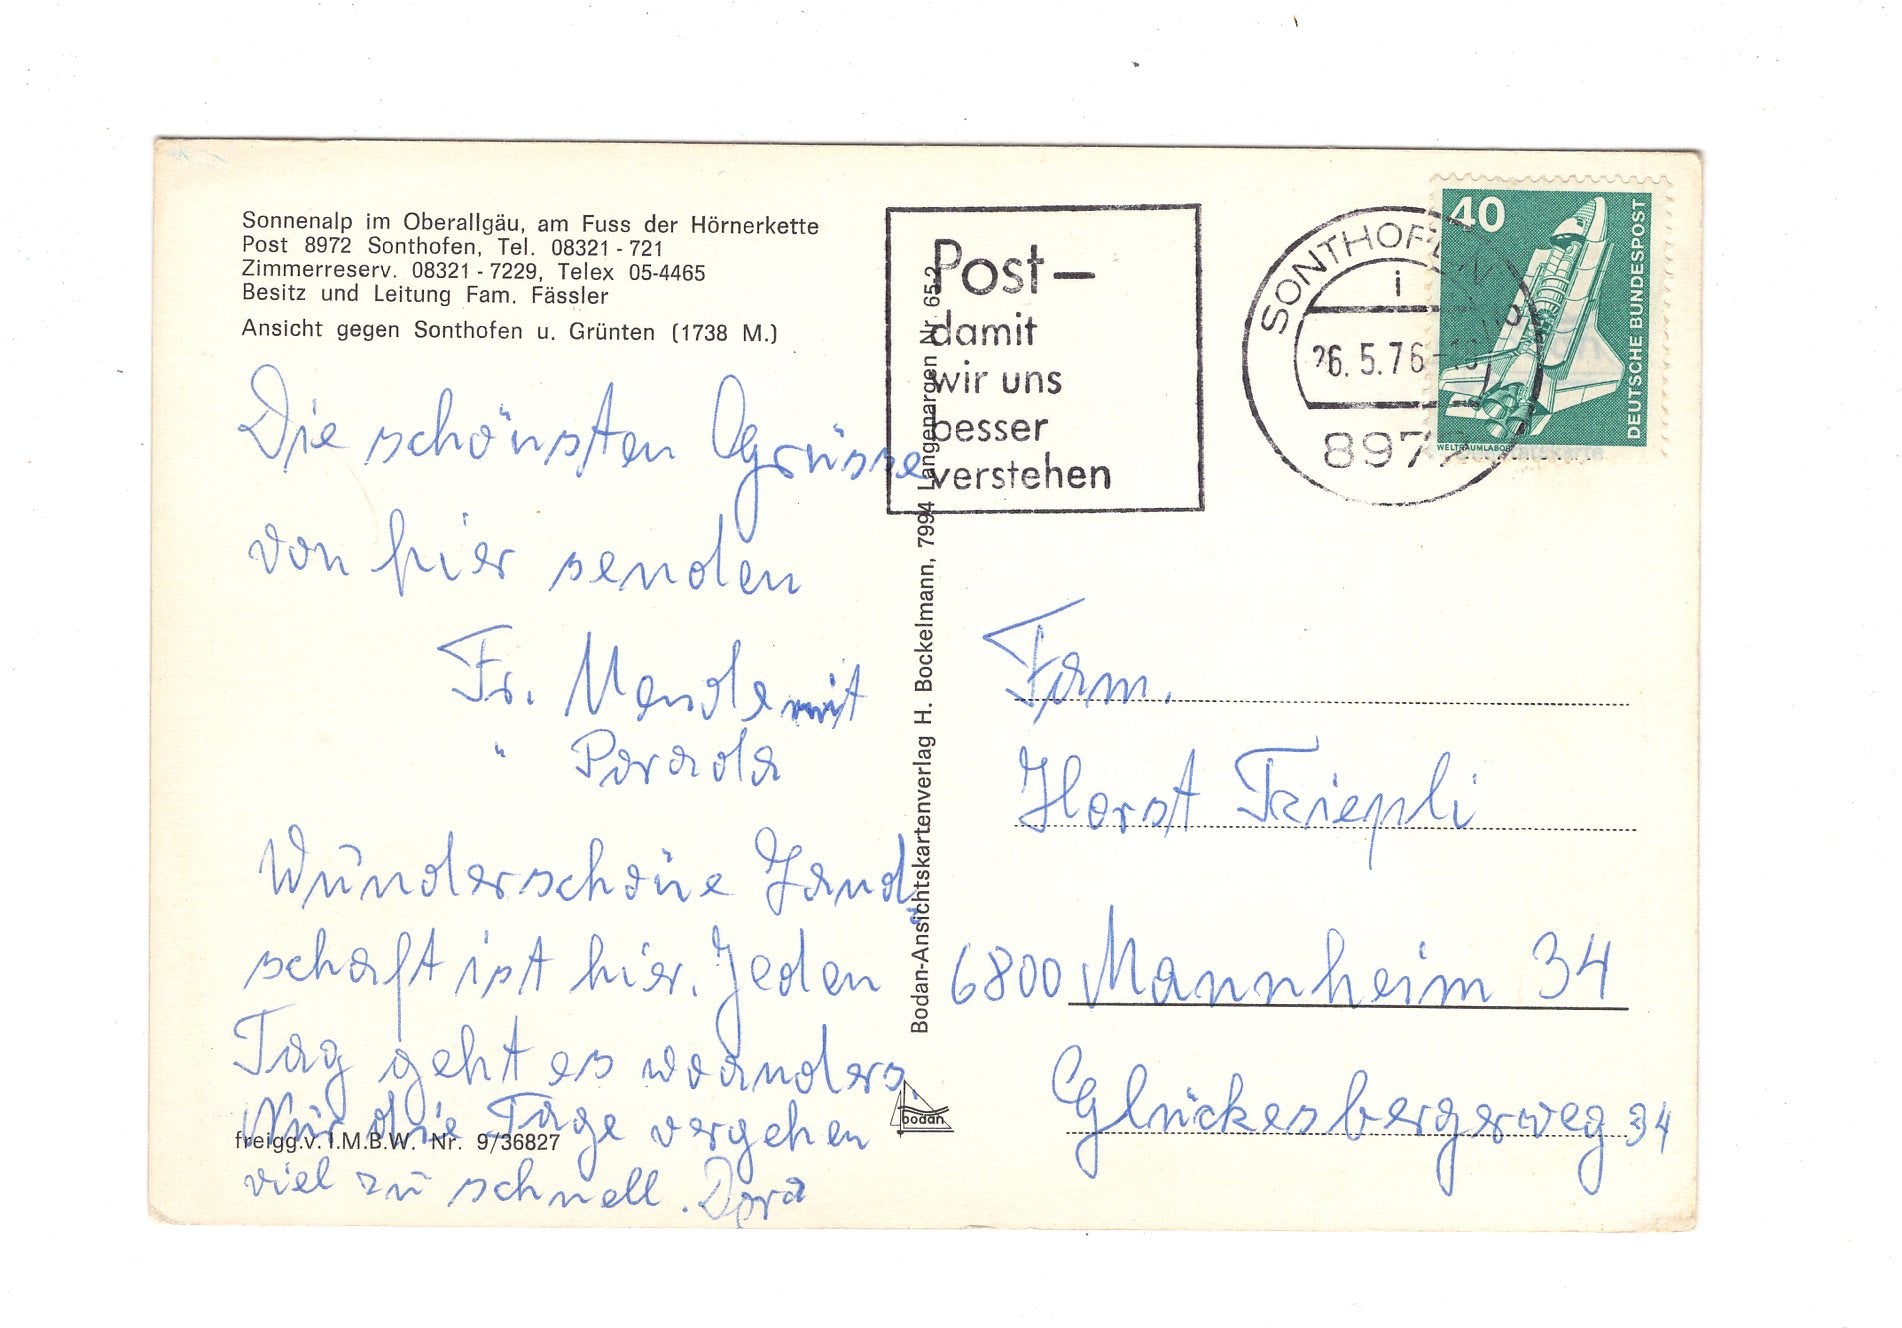 Sonnenalp im Oberallgäu, am Fuss der Hörnerkette
Post 8972 Sonthofen, Tel. 08321-721
Zimmerreserv. 08321-7229, Telex 05-4465
Besitz und Leitung Fam. Fässler
Ansicht gegen Sonthofen u. Grünten (1738 M.)
Die schönsten Grüsse
von hier senden
Fr. Mendle mit
" Parada
Wunderschöne Land-
schaft ist hier. Jeden
Tag geht es woanders
Nur die Tage vergehen
viel zu schnell. Dora
freigg.v. I.M.B.W. Nr. 9/36827
Bodan-Ansichtskartenverlag H. Bockelmann, 7994 Langenargen Nr. 65-2
bodan
Post–
damit
wir uns
besser
verstehen
SONTHOFEN
i
26.5.76
8972
40
DEUTSCHE BUNDESPOST
WELTRAUMLABOR
Fam.
Horst
6800 Mannheim 34
Glückesbergerweg 34